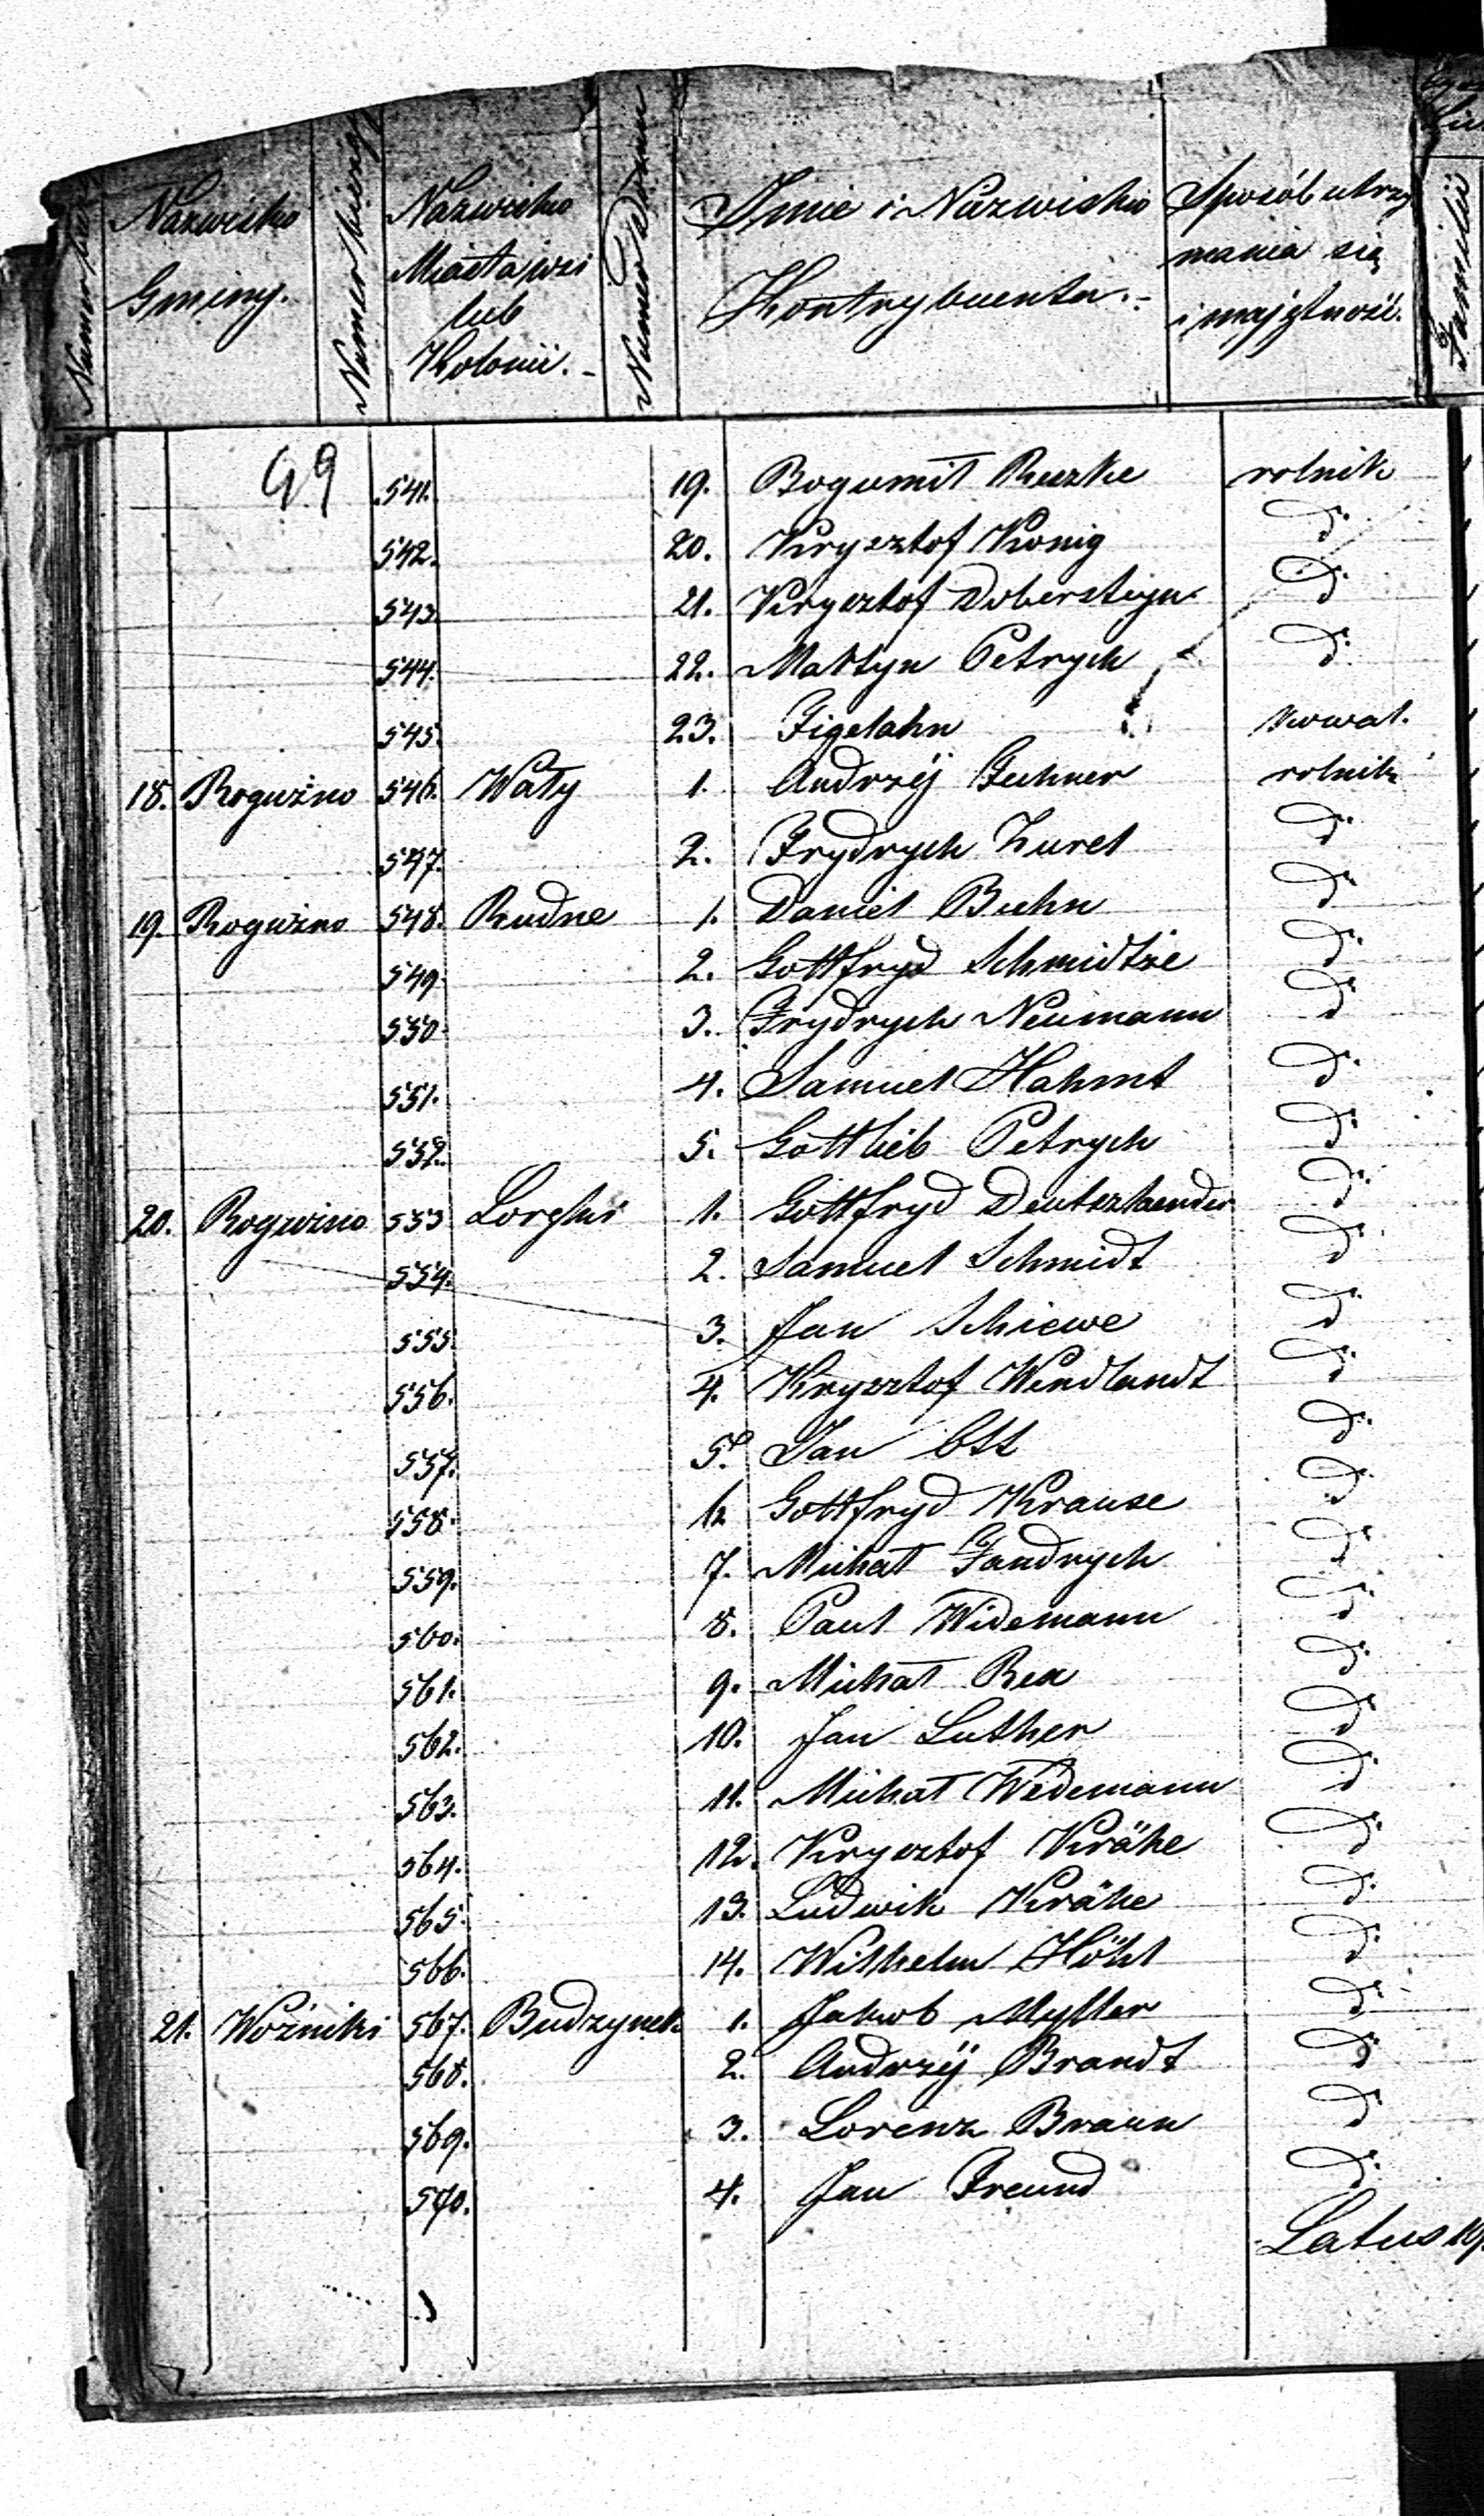 Nazwisko Gminy.
Numer bieżą
Nazwisko Miasta, wsi lub Kolonii.
Numer Domu
Imie i Nazwisko Kontrybuenta.
Sposób utrzymania się i majętność.
Familii
49
541. 19. Bogumił Reczke rolnik
542. 20. Krysztof Konig d
543. 21. Krysztof Dobersteyn d
544. 22. Martyn Petrych d
545. 23. Figelahn kowal.
18. Roguźno 546. Wały 1. Andrzÿ Guhner rolnik
547. 2. Frydrych Zurel d
19. Roguźno 548. Rudne 1. Daniel Buhn d
549. 2. Gottfryd Schmidtke d
550. 3. Frydrych Neumann d
551. 4. Samuel Hahmt d
552. 5. Gottlieb Petrych d
20. Roguźno 553 1. Gottfryd d
554. 2. Samuel Schmidt d
555. 3. Jan Schiewe d
556. 4. Krysztof Wendlandt d
557. 5. Jan Ott d
558. 6. Gottfryd Krause d
559. 7. Michał Jandrych d
560. 8. Paul Widemann d
561. 9. Michał Rex d
562. 10. Jan Luther d
563. 11. Michał Wedemann d
564. 12. Krysztof Krähe d
565. 13. Ludwik Krähe d
566. 14. Wilhelm Höhl d
21. Woźniki 567. Budzynek 1. Jakob Myller d
568. 2. Andrzÿ Brandt d
569. 3. Lorenz Braun d
570. 4. Jan Freund d
Latus